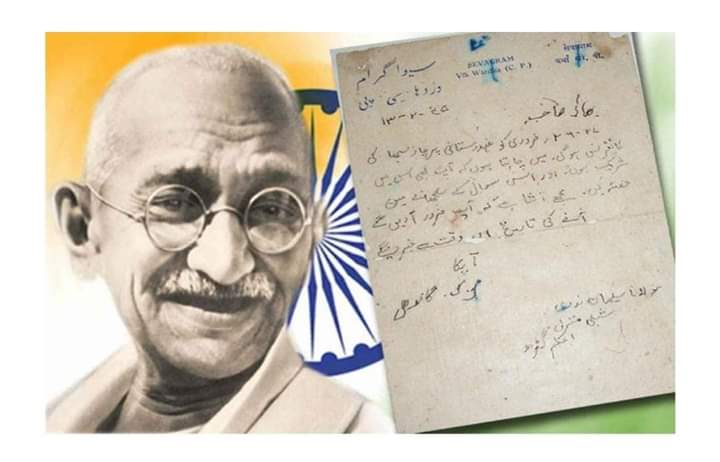 SEVAGRAM
Via Wardha (C. P.)
सेवाग्राम
वर्धा सी. पी.
سیواگرام
وردھا سی پی
۱۳-۲-۴۵
بھائی صاحب
۲۶-۲۷ فروری کو ہندوستانی پرچار سبھا کی
کانفرنس ہوگی۔ میں چاہتا ہوں کہ آپ بھی اس میں
شریک ہوں اور اس سوال کے سلجھانے میں
حصہ لیں۔ مجھے آشا ہے کہ آپ ضرور آویں گے
آنے کی تاریخ اور وقت سے خبر دیجئے
آپکا
مو۔ک۔ گاندھی
مولانا سلیمان ندوی
شبلی منزل
اعظم گڑھ